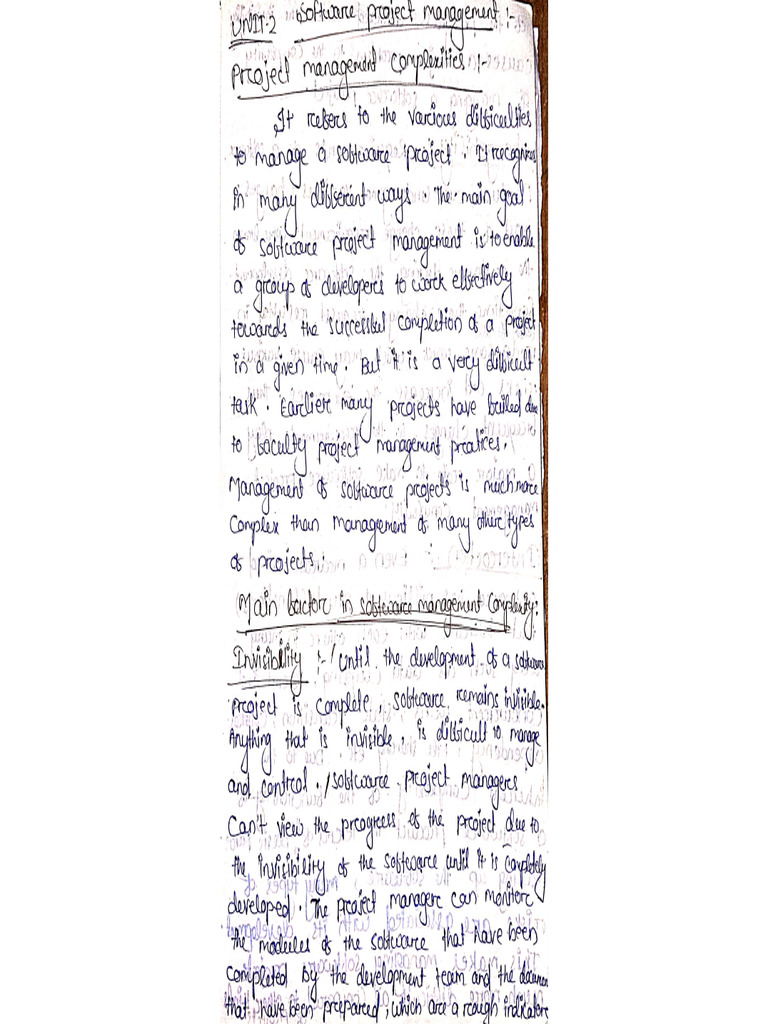 UNIT-2 Software project management :-
Project management Complexities :-
It refers to the various difficulties
to manage a software project. It recognizes
in many different ways. The main goal
of software project management is to enable
a group of developers to work effectively
towards the successful completion of a project
in a given time. But it is a very difficult
task. Earlier many projects have failed due
to faculty project management practices.
Management of software projects is much more
Complex than management of many other types
of projects.
Main factor in software management Complexity:
Invisibility :- Until the development of a software
project is complete, software remains invisible.
Anything that is invisible, is difficult to manage
and control. software project managers
Can't view the progress of the project due to
the invisibility of the software until it is Completely
developed. The project manager can monitor
the modules of the software that have been
Completed by the development team and the
that have been prepared, which are a rough indicators